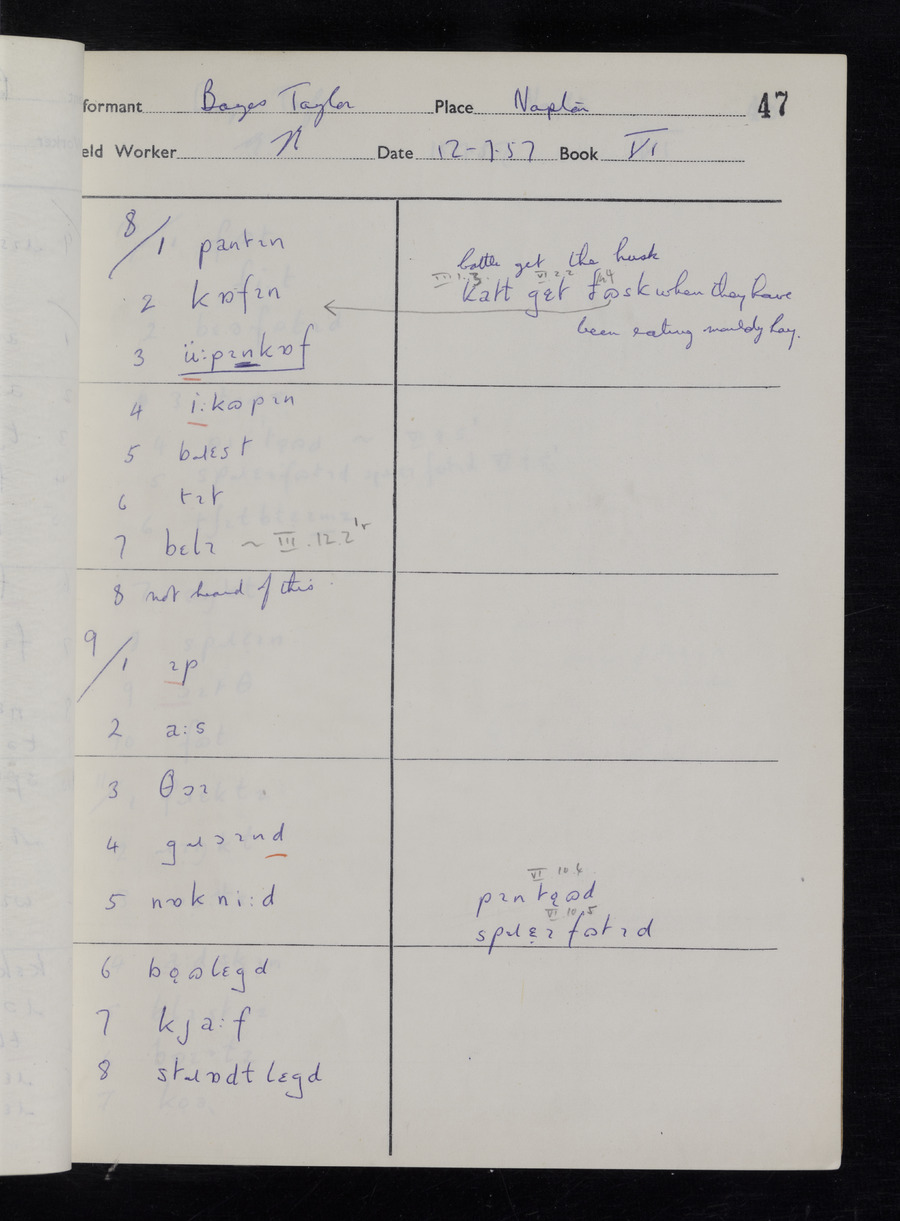 formant Bayes Taylor Place Napton 47
eld Worker N Date 12-7-57 Book VI
8/1 pantɪn
2 kɒfɪn
3 ü:pɪnkɒf
4 i:kɷpɪn
5 bɹɛst
6 tɪt
7 bɛlɪ ~ III.12.2
8 not heard of this
9/1 ɪp
2 a:s
3 θɔɪ
4 gɹɔɪnd
5 nɒk ni:d
6 bɷlɛgd
7 kja:f
8 stɹɒdtlɛgd
get the husk
gɛt when they have
been eating mouldy hay.
VI 10.4
VI 10.5